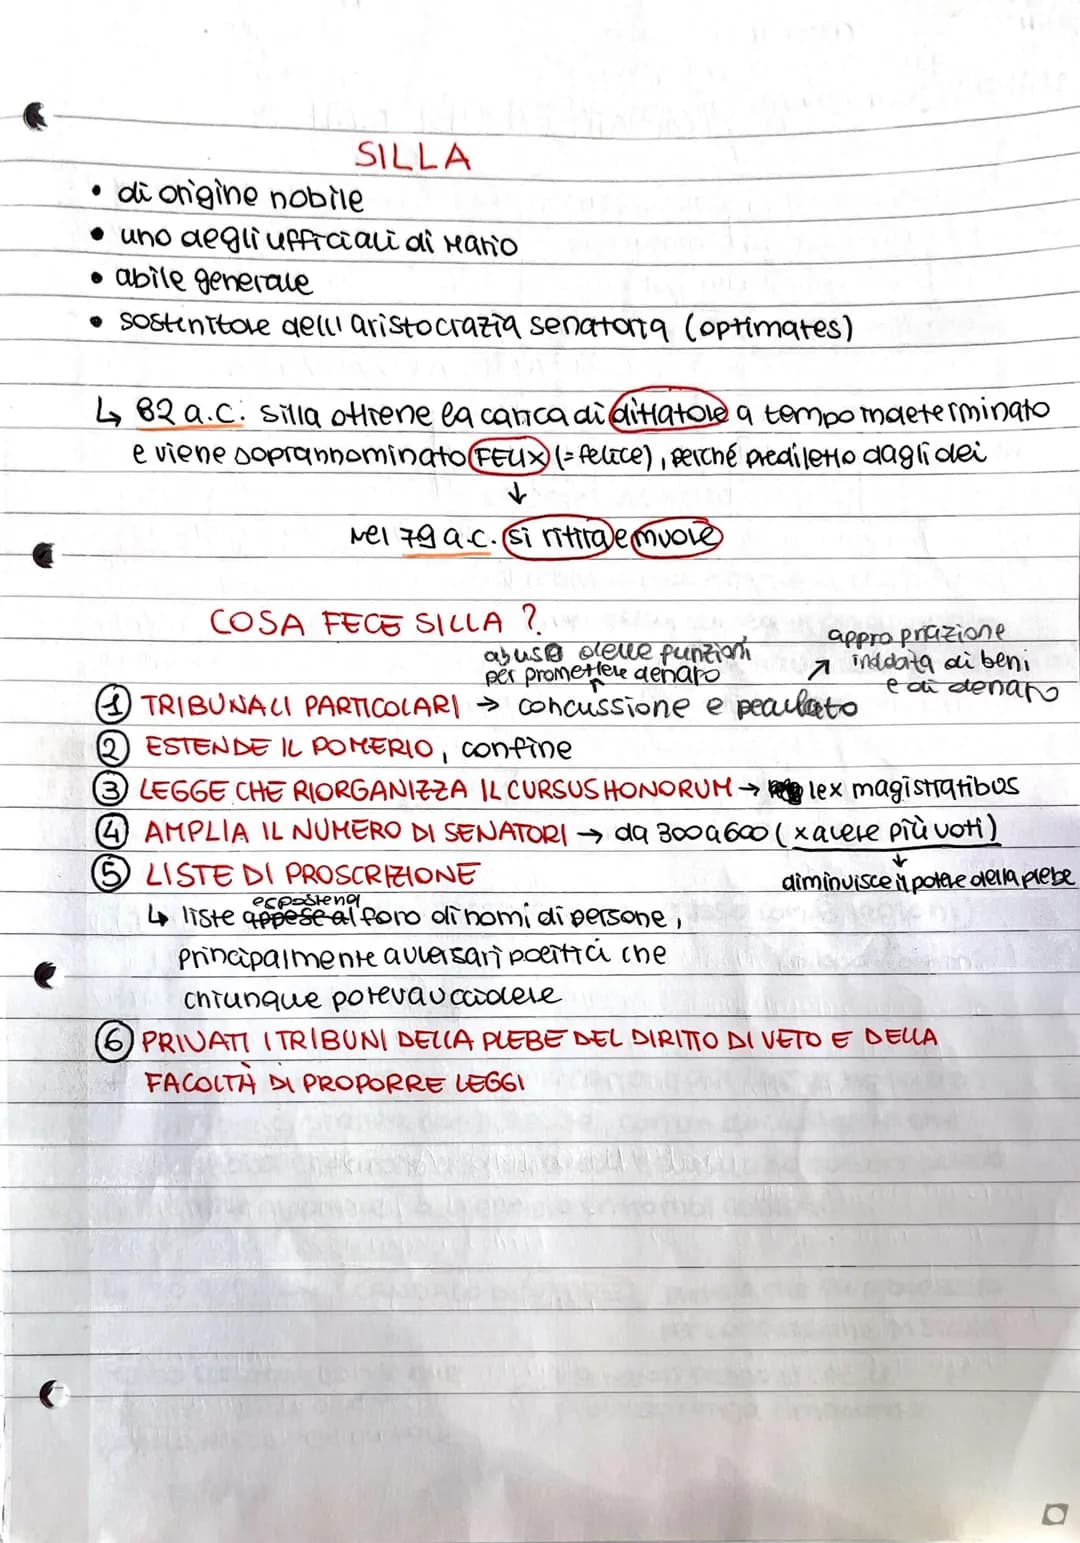 SILLA
• di origine nobile
• uno degli ufficiali di Mario
• abile generale
• sostenitore dell'aristocrazia senatoria (optimates)
↳ 82 a.C. Silla ottiene la carica di dittatore a tempo indeterminato
e viene soprannominato FELIX (= felice), perché prediletto dagli dei
↓
Nel 79 a.C. si ritira e muore
COSA FECE SILLA?
abuso delle funzioni
per promettere denaro
appropriazione
indebita di beni
e di denaro
① TRIBUNALI PARTICOLARI → concussione e peculato
② ESTENDE IL POMERIO, confine
③ LEGGE CHE RIORGANIZZA IL CURSUS HONORUM → lex magistratibus
④ AMPLIA IL NUMERO DI SENATORI → da 300 a 600 (x avere più voti)
↓
diminuisce il potere della plebe
⑤ LISTE DI PROSCRIZIONE
↳ liste appese al foro di nomi di persone,
principalmente avversari politici che
chiunque poteva uccidere
⑥ PRIVATI I TRIBUNI DELLA PLEBE DEL DIRITTO DI VETO E DELLA
FACOLTÀ DI PROPORRE LEGGI